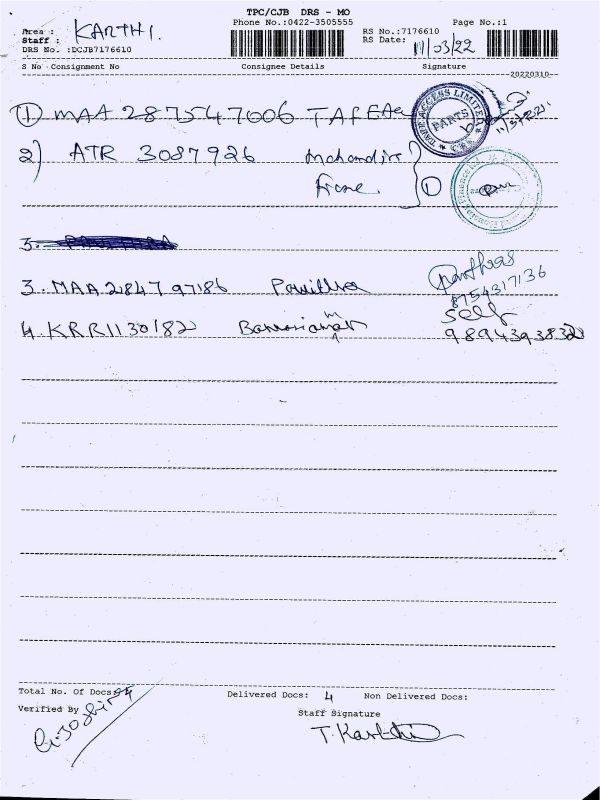 TPC/CJB DRS - MO
Phone No.:0422-3505555 Page No.:1
Area : KARTHI.
Staff :
DRS No. :DCJB7176610
RS No.:7176610
RS Date: 11/03/22
S No Consignment No Consignee Details Signature
20220310
① MAA 287547006 TAFE
ACCESS LIMITED
PARTS
2) ATR 3087926 Mahandira
①
3. MAA 284797186 Pavithra
8754317136
4. KRR1130182 self
9894393832
Total No. Of Docs: 4 Delivered Docs: 4 Non Delivered Docs:
Verified By
Staff Signature
T. Karthi